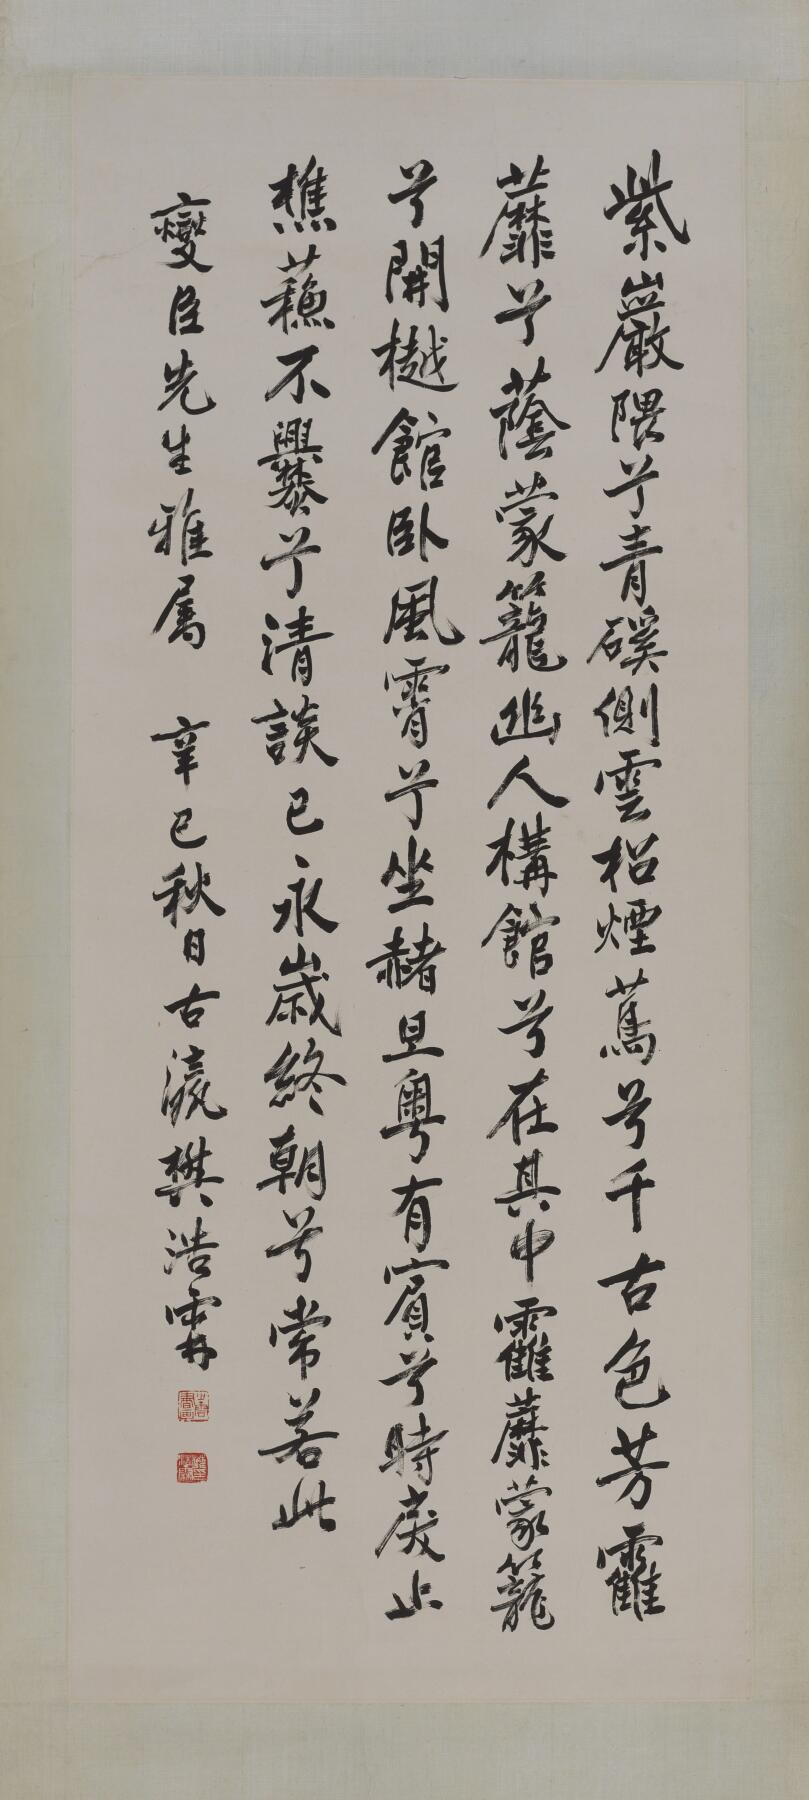 紫巖隈兮青磎側雲松煙蔦兮千古色芳靃
蘼兮蔭蒙籠幽人構館兮在其中靃蘼蒙籠
兮開樾館臥風霄兮坐赭旦粤有賓兮時戾止
樵蘓不爨兮清談已永歲終朝兮常若此
燮臣先生雅属 辛巳秋日古瀛樊浩霖